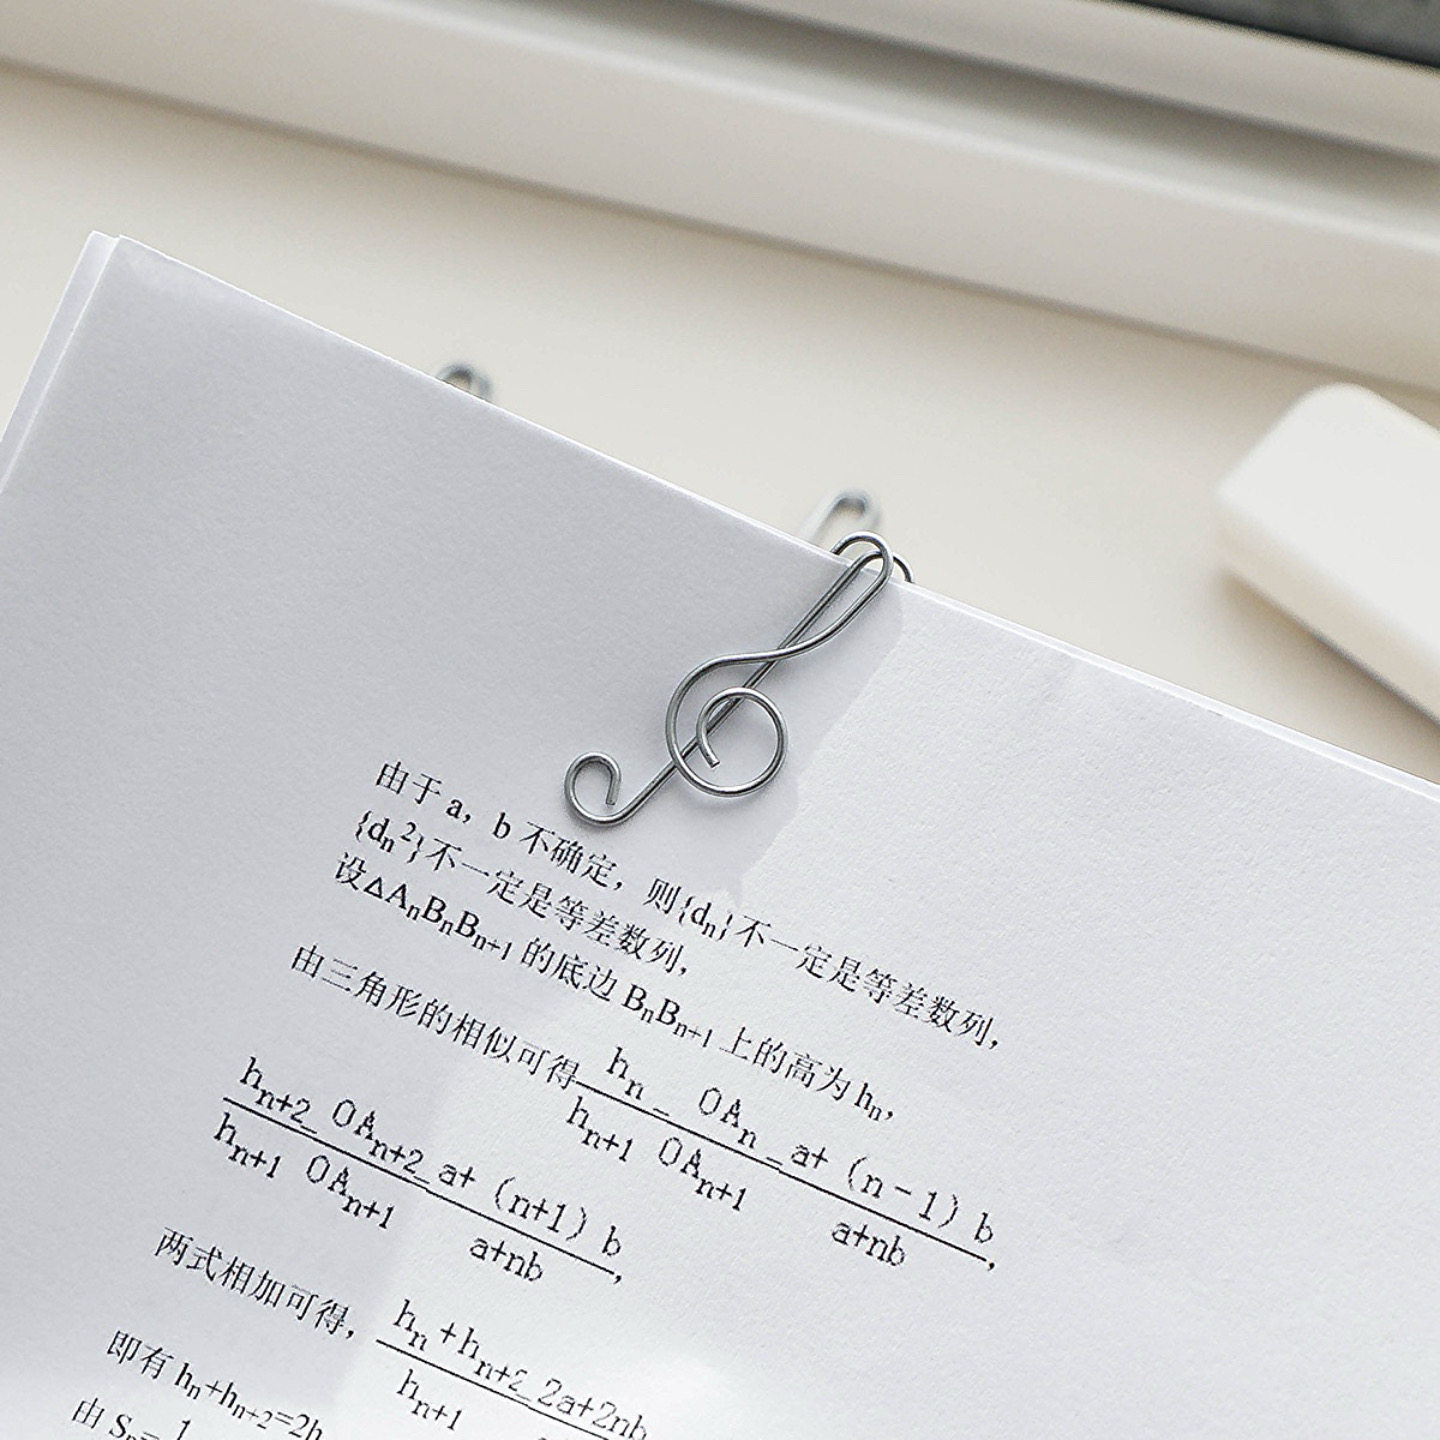 由于 a，b 不确定，则{dₙ}不一定是等差数列，
{dₙ²}不一定是等差数列，
设△AₙBₙBₙ₊₁ 的底边 BₙBₙ₊₁ 上的高为 hₙ，
由三角形的相似可得 hₙ/hₙ₊₁ = OAₙ/OAₙ₊₁ = a+（n-1）b/a+nb，
hₙ₊₂/hₙ₊₁ = OAₙ₊₂/OAₙ₊₁ = a+（n+1）b/a+nb，
两式相加可得，hₙ+hₙ₊₂/hₙ₊₁ = 2a+2nb
即有 hₙ+hₙ₊₂=2h
由 Sₙ=1